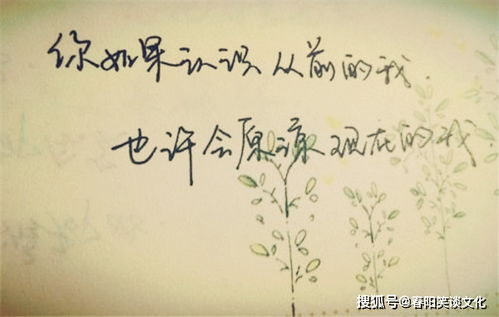 你如果认识从前的我.
也许会原谅现在的我
搜狐号@春阳笑谈文化